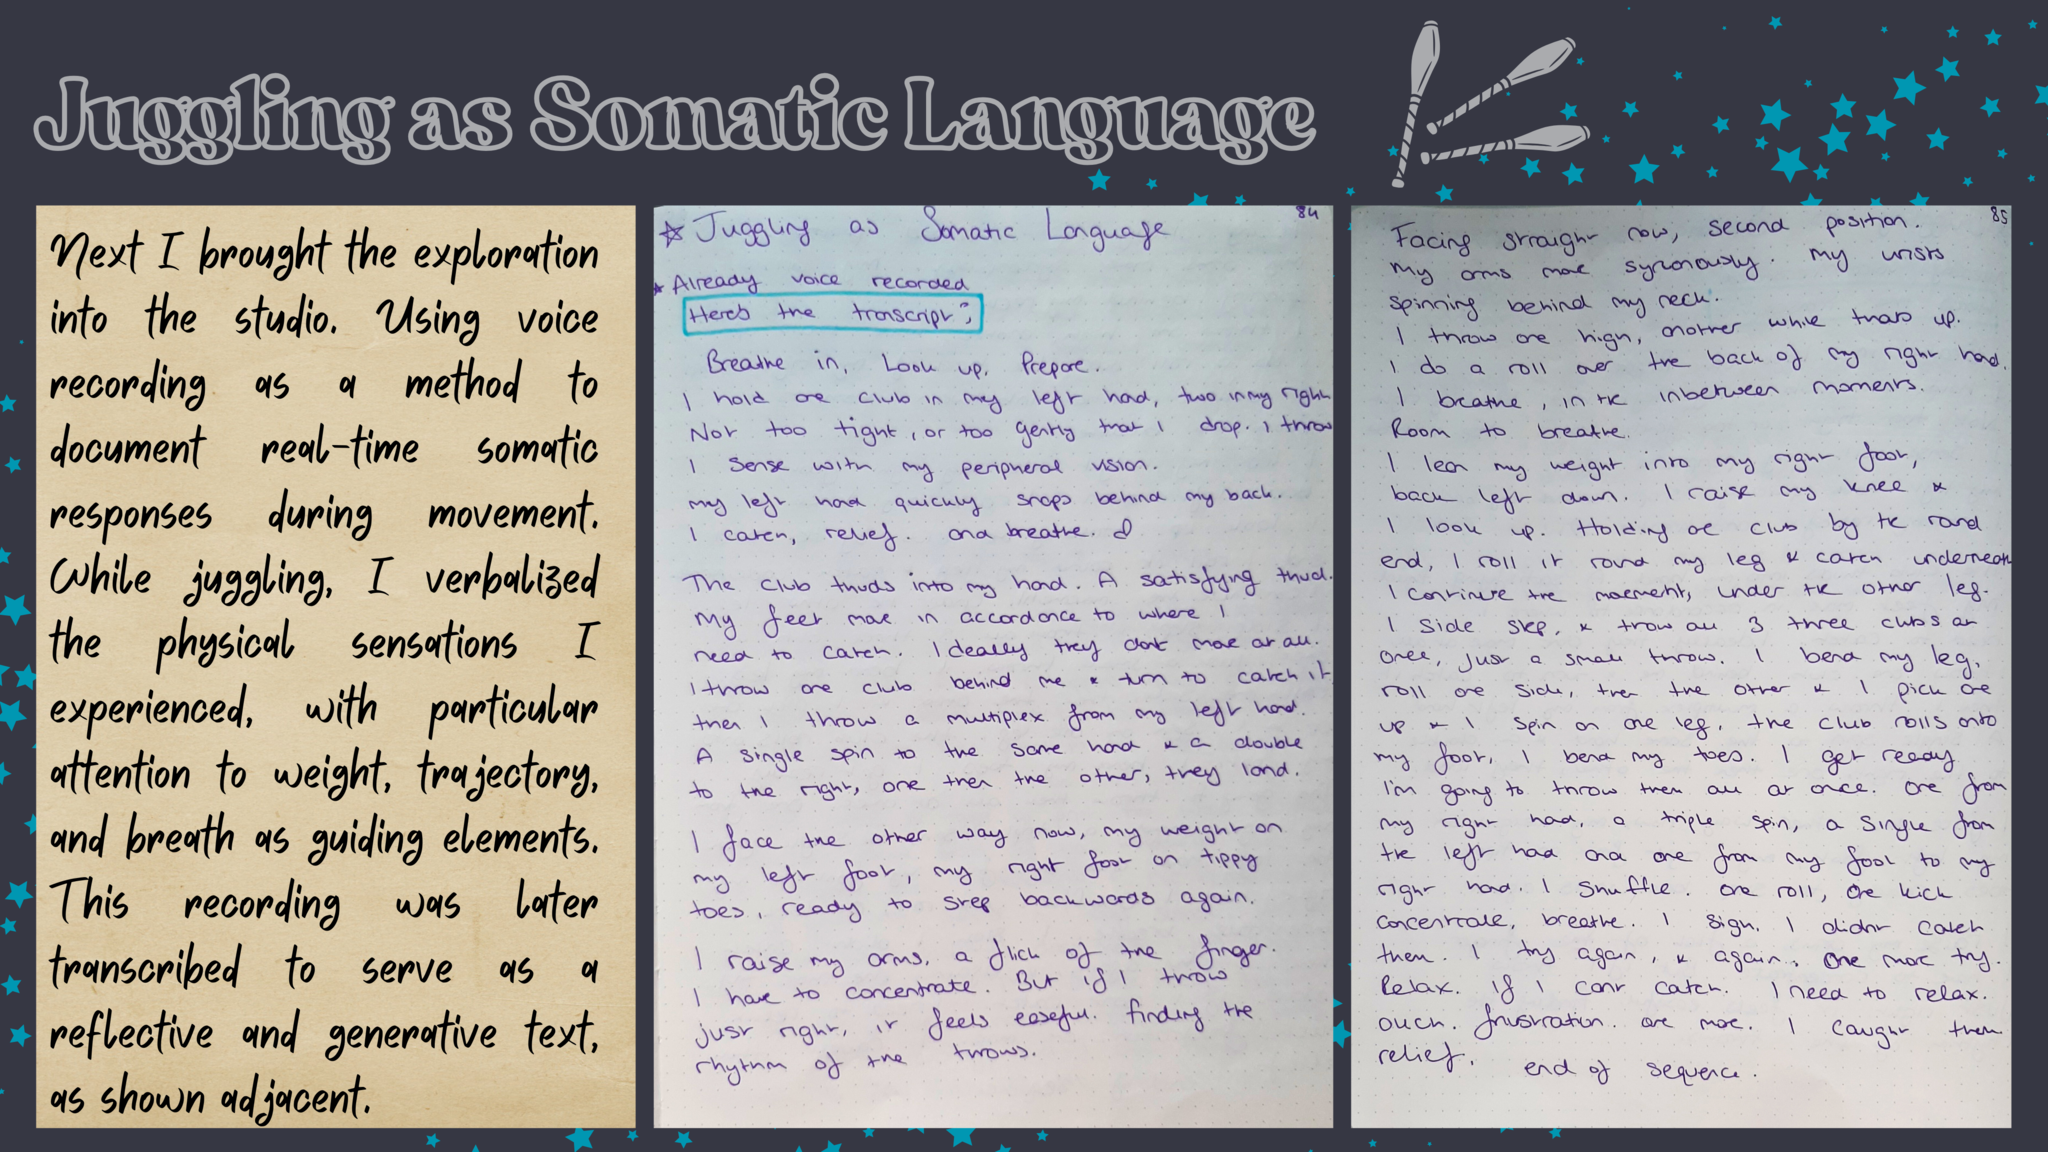 Juggling as Somatic Language
Next I brought the exploration
into the studio. Using voice
recording as a method to
document real-time somatic
responses during movement.
While juggling, I verbalized
the physical sensations I
experienced, with particular
attention to weight, trajectory,
and breath as guiding elements.
This recording was later
transcribed to serve as a
reflective and generative text,
as shown adjacent.
84
☆ Juggling as Somatic Language
★ Already voice recorded
Here's the transcript:
Breathe in, Look up. Prepare.
I hold one club in my left hand, two in my right
Not too tight, or too gently that I drop. I throw
I sense with my peripheral vision.
my left hand quickly snaps behind my back.
I catch, relief. and breathe.
The club thuds into my hand. A satisfying thud.
My feet move in accordance to where I
need to catch. Ideally they dont move at all.
I throw one club behind me & turn to catch it
then I throw a multiplex from my left hand.
A single spin to the same hand & a double
to the right, one then the other, they land.
I face the other way now, my weight on
my left foot, my right foot on tippy
toes, ready to step backwards again.
I raise my arms, a flick of the finger.
I have to concentrate. But if I throw
just right, it feels easeful. finding the
rhythm of the throws.
85
Facing straight now, second position.
My arms move syncronously. My wrists
spinning behind my neck.
I throw one high, another while thats up.
I do a roll over the back of my right hand.
I breathe, in the inbetween moments.
Room to breathe.
I lean my weight into my right foot,
back left down. I raise my knee &
I look up. Holding one club by the round
end, I roll it round my leg & catch underneath
I continue the movement, under the other leg.
I side step, & trow all 3 three clubs at
once, just a small throw. I bend my leg,
roll one side, then the other & I pick one
up & I spin on one leg, the club rolls onto
my foot, I bend my toes. I get ready
I'm going to throw them all at once. One from
my right hand, a triple spin, a single from
the left hand and one from my foot to my
right hand. I shuffle. One roll, one kick
concentrate, breathe. I sigh. I didnt catch
them. I try again, & again. One more try.
Relax. If I cant catch. I need to relax.
Ouch. frustration. One more. I caught them
relief.
end of sequence.